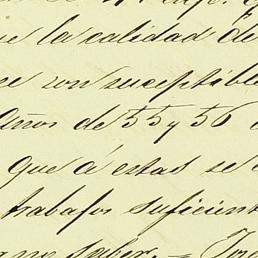 que la calidad de
son susceptible
años de 55 y 56
que á estas se
trabajos suficient
no saber. =